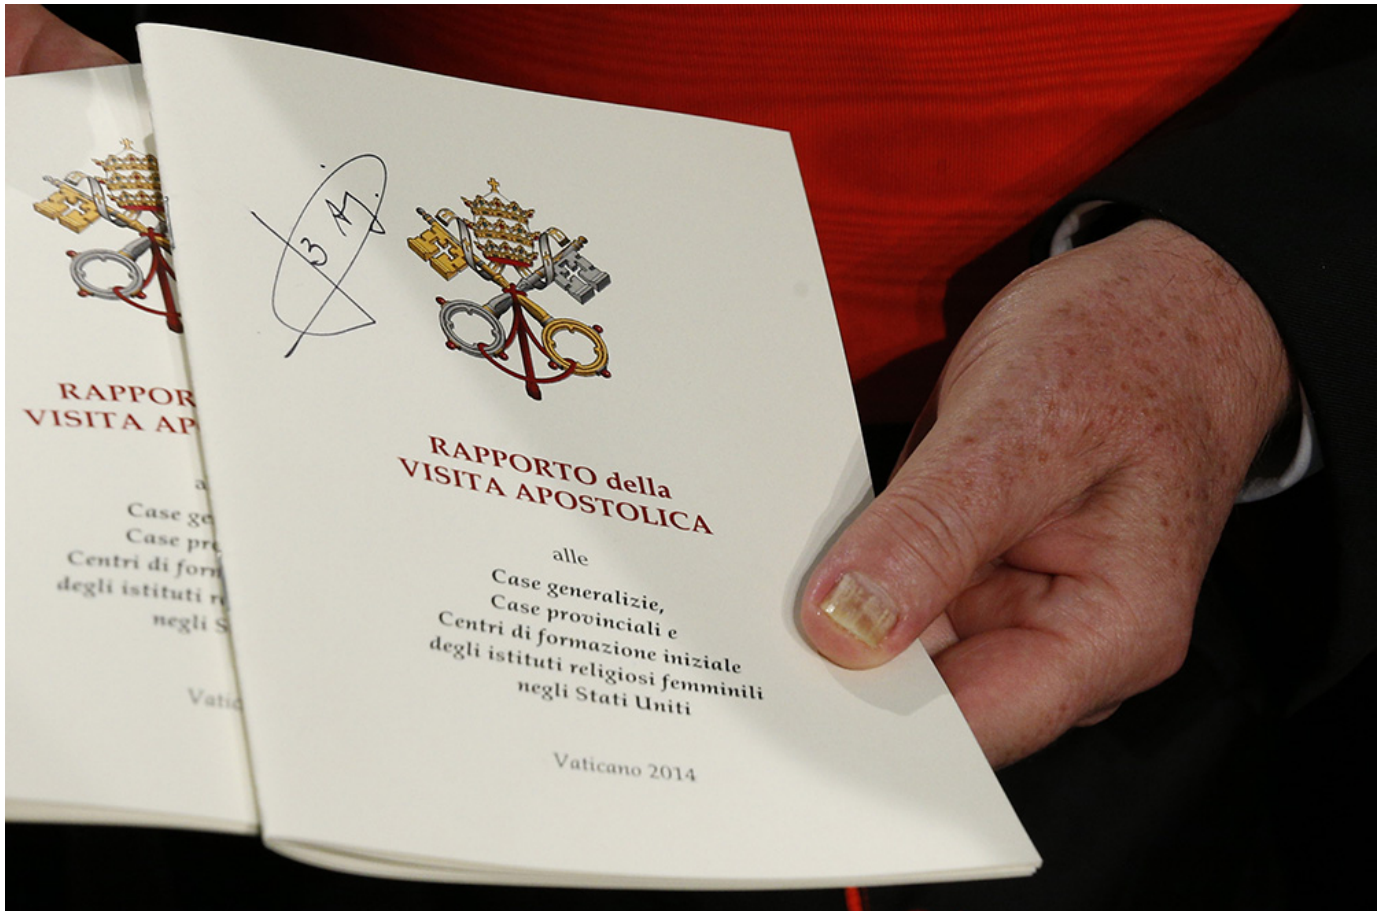 RAPPOR
VISITA AP
a
Case ge
Case pro
Centri di form
degli istituti r
negli S
Vatic
RAPPORTO della
VISITA APOSTOLICA
alle
Case generalizie,
Case provinciali e
Centri di formazione iniziale
degli istituti religiosi femminili
negli Stati Uniti
Vaticano 2014